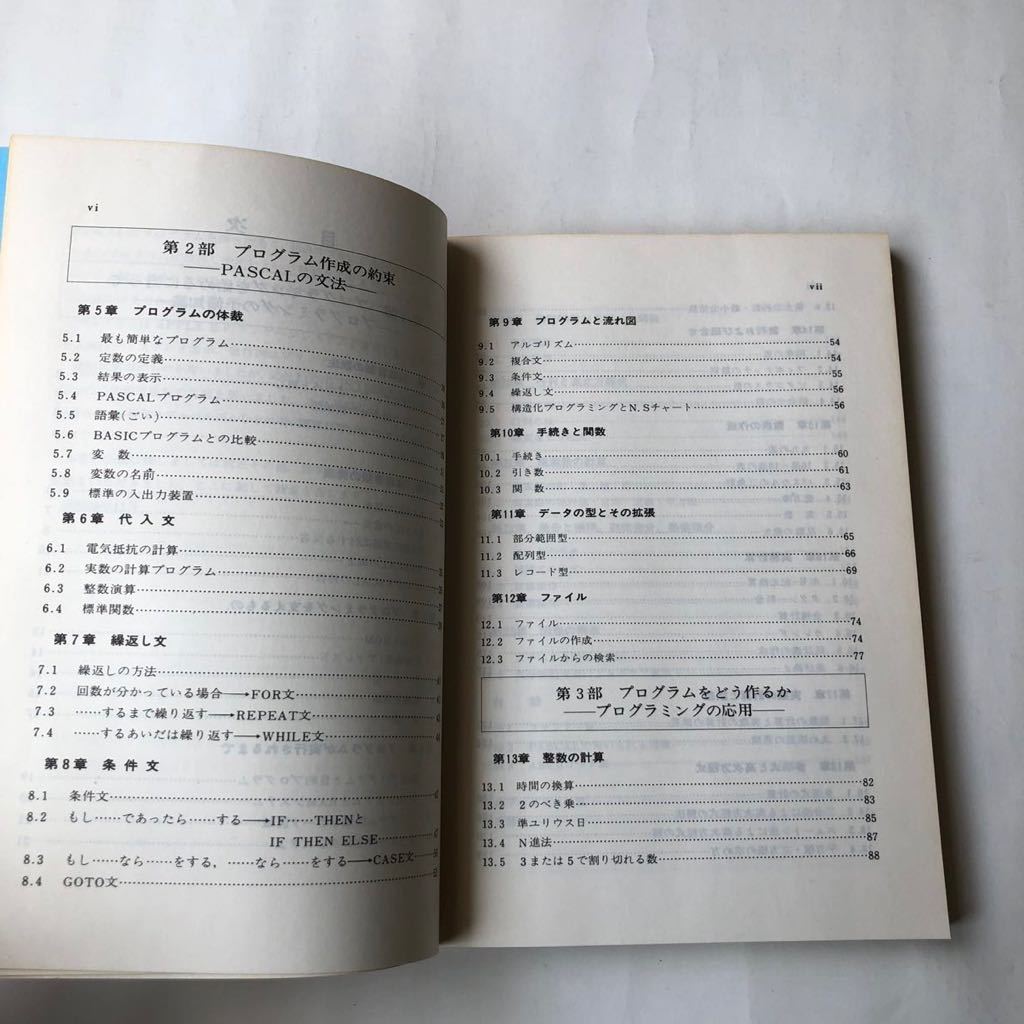 vi
第2部 プログラム作成の約束
——PASCALの文法——
第5章 プログラムの体裁
5.1 最も簡単なプログラム
5.2 定数の定義
5.3 結果の表示
5.4 PASCALプログラム
5.5 語彙(ごい)
5.6 BASICプログラムとの比較
5.7 変 数
5.8 変数の名前
5.9 標準の入出力装置
第6章 代 入 文
6.1 電気抵抗の計算
6.2 実数の計算プログラム
6.3 整数演算
6.4 標準関数
第7章 繰返し文
7.1 繰返しの方法
7.2 回数が分かっている場合→FOR文
7.3 ……するまで繰り返す→REPEAT文
7.4 ……するあいだは繰り返す→WHILE文
第8章 条 件 文
8.1 条件文
8.2 もし……であったら……する→IF……THENと
IF THEN ELSE
8.3 もし……なら……をする，……なら……をする→CASE文
8.4 GOTO文
vii
第9章 プログラムと流れ図
9.1 アルゴリズム……54
9.2 複合文……54
9.3 条件文……55
9.4 繰返し文……56
9.5 構造化プログラミングとN.Sチャート……56
第10章 手続きと関数
10.1 手続き……60
10.2 引き数……61
10.3 関 数……63
第11章 データの型とその拡張
11.1 部分範囲型……65
11.2 配列型……66
11.3 レコード型……69
第12章 ファイル
12.1 ファイル……74
12.2 ファイルの作成……74
12.3 ファイルからの検索……77
第3部 プログラムをどう作るか
——プログラミングの応用——
第13章 整数の計算
13.1 時間の換算……82
13.2 2のべき乗……83
13.3 準ユリウス日……85
13.4 N進法……87
13.5 3または5で割り切れる数……88